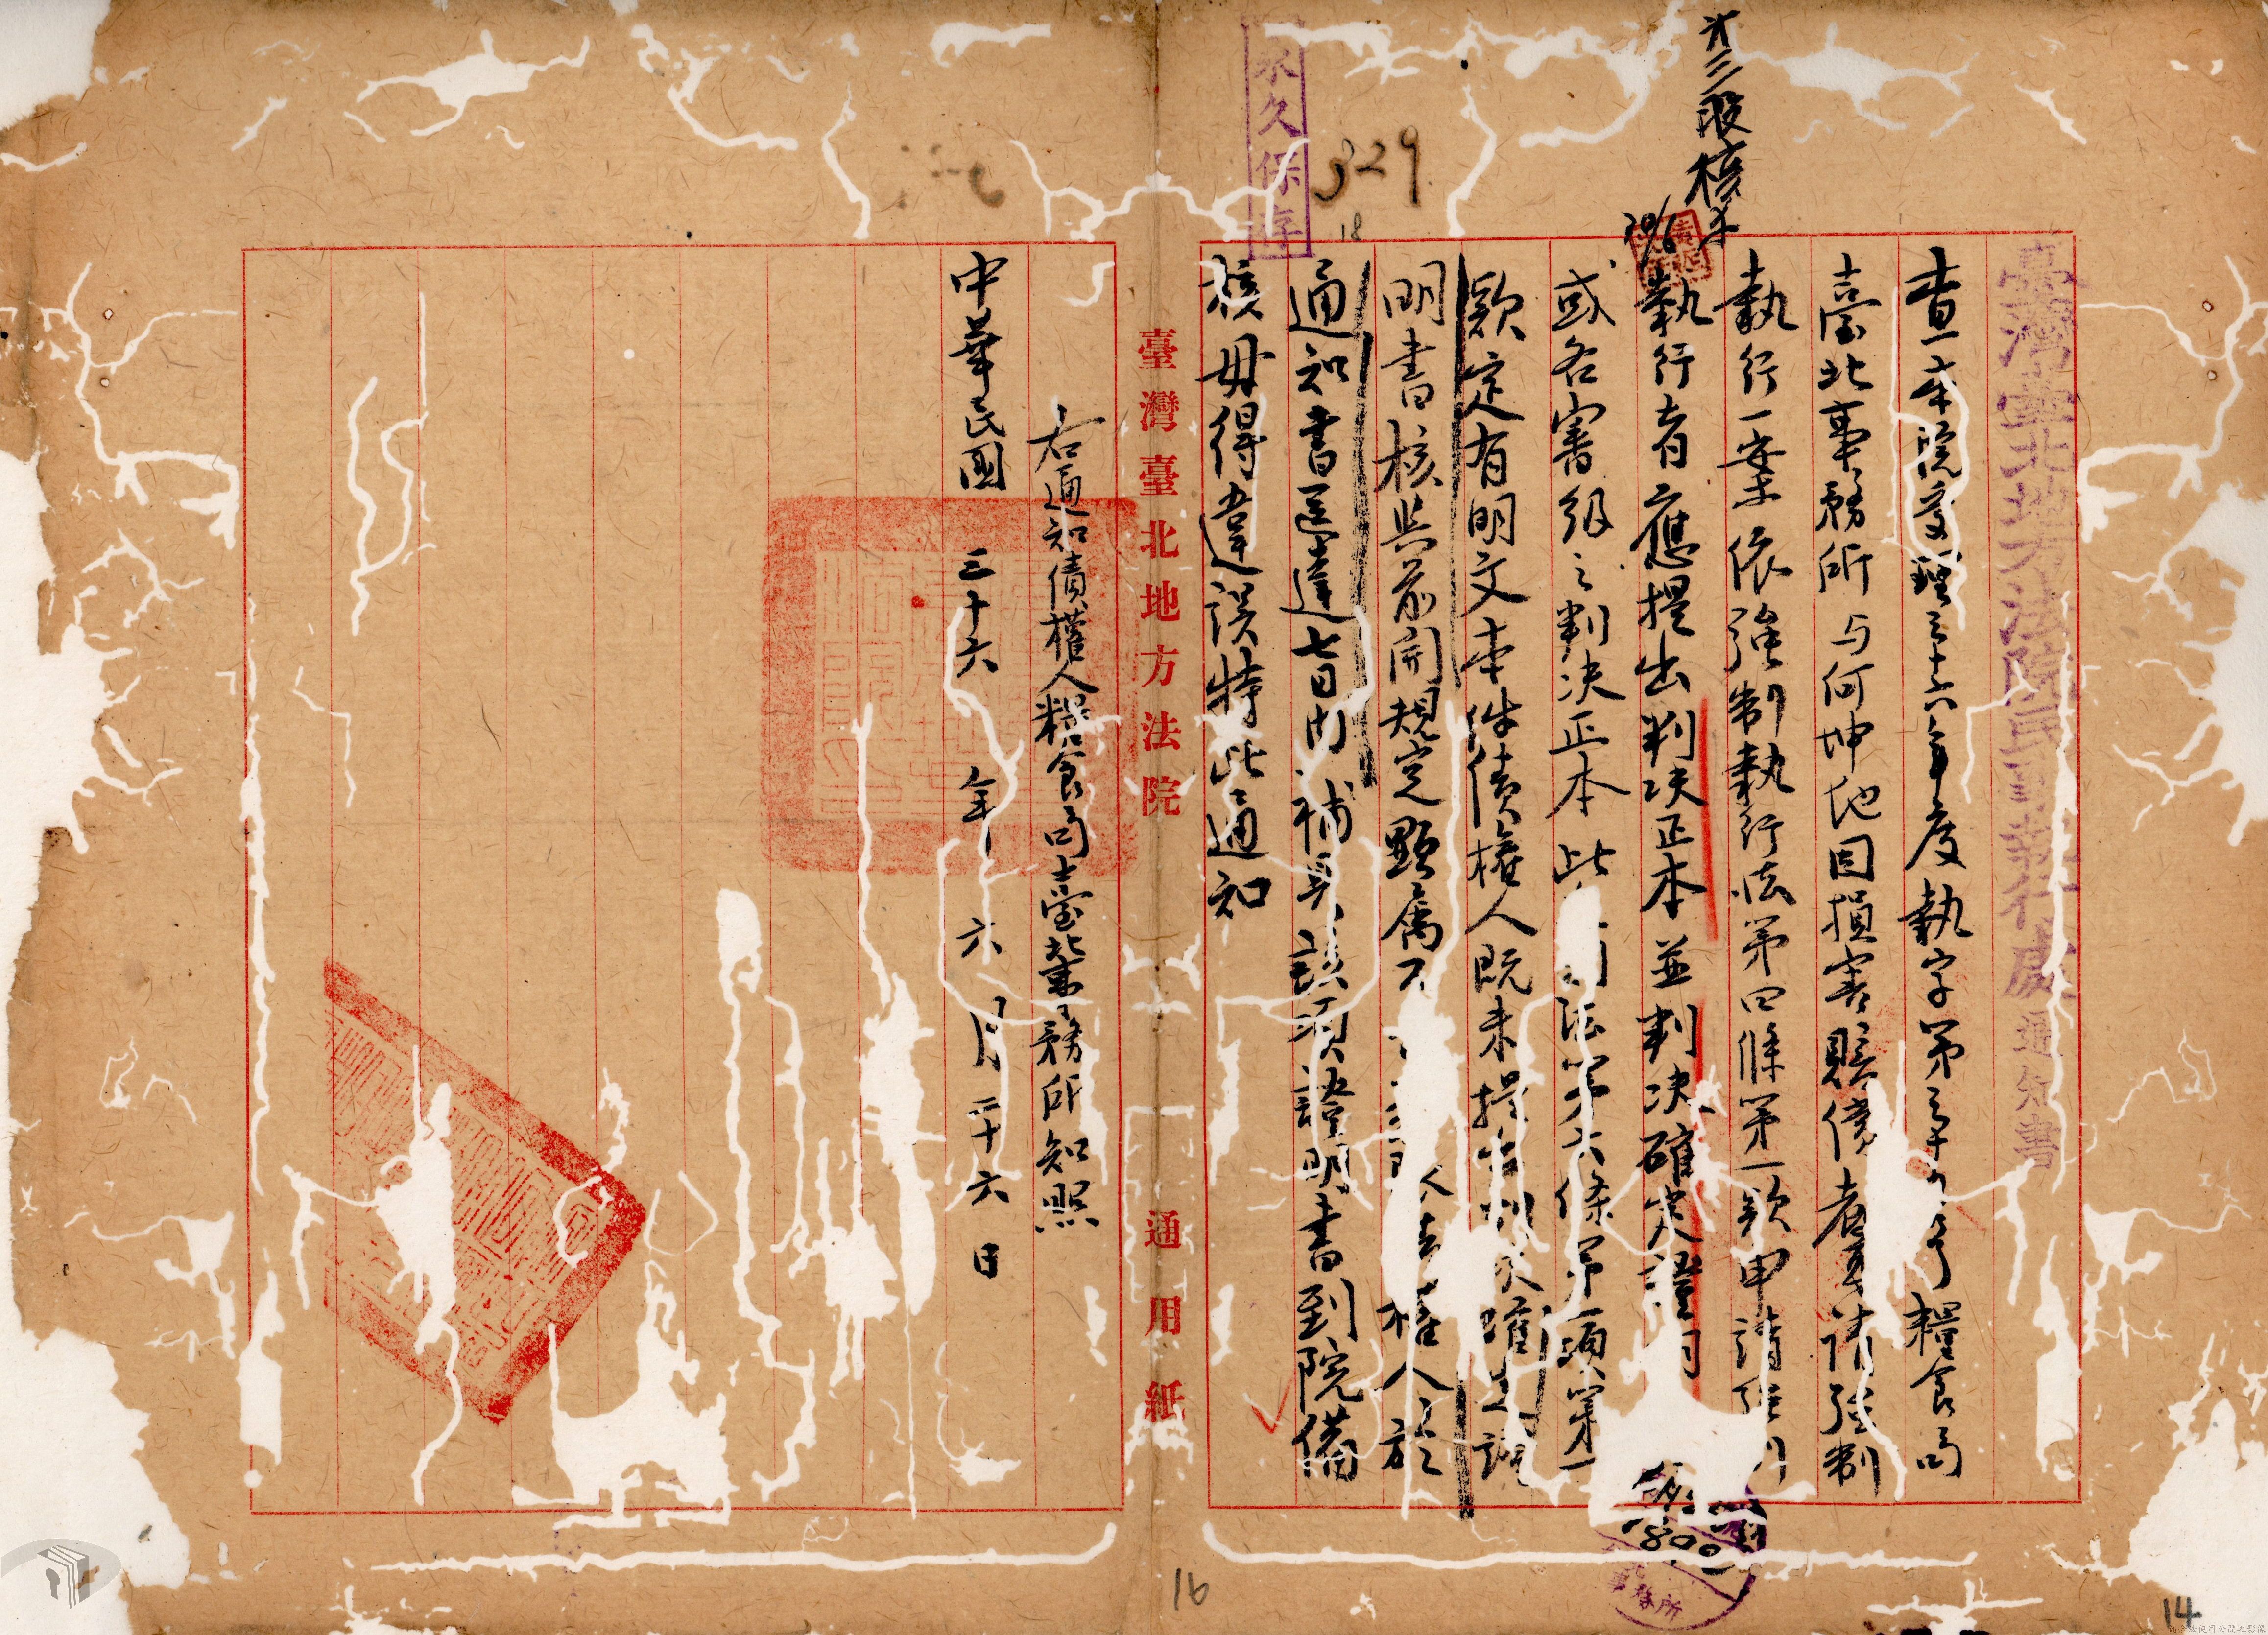 臺灣臺北地方法院民事執行處通知書
查本院受理三十六年度執字第三十號糧食局
臺北事務所与何坤地因損害賠償者聲請強制
執行一案依強制執行法第四條第一款申請強制
執行者應提出判決正本並判決確定證明
或各審級之判決正本此法第六條第一項第一
款定有明文本件債權人既未提出判決確定證
明書核與前開規定顯屬不 權人於
通知書送達七日內補具該項證明書到院備
核毋得違誤特此通知
右通知債權人糧食局臺北事務所知照
中華民國三十六年六月二十六日
臺灣臺北地方法院 通用紙
永久保存
329
18
第三股核
800
務所
16
14